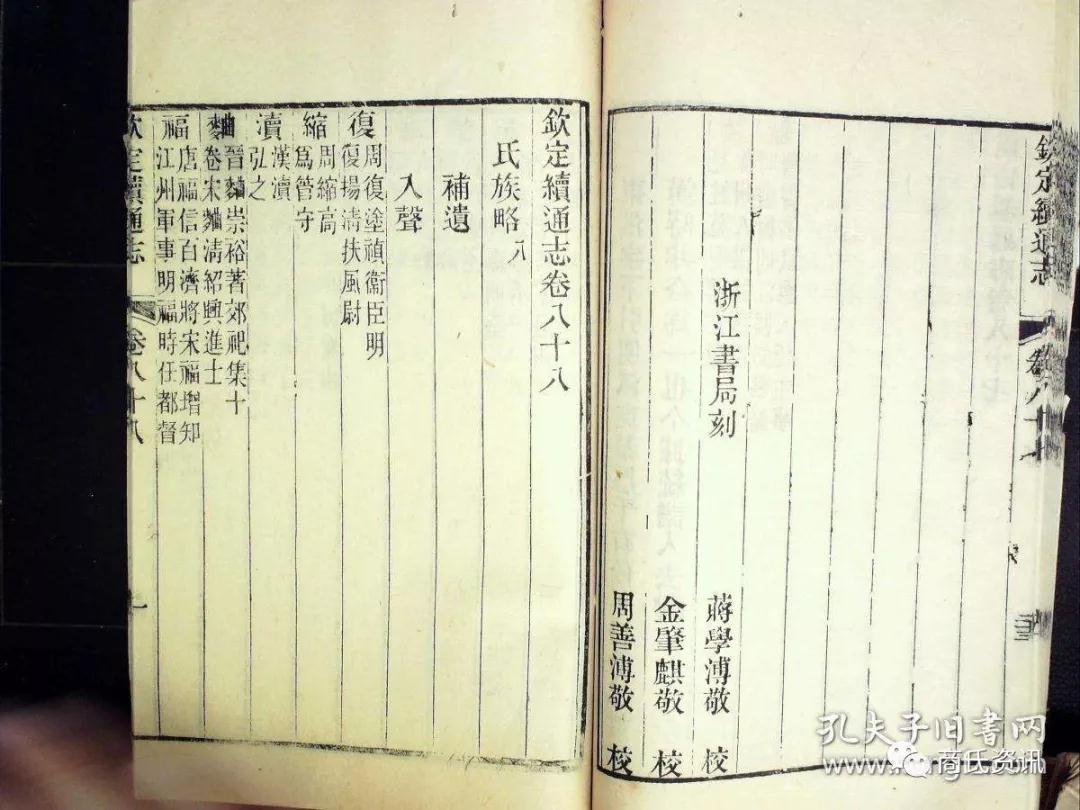 欽定續通志
卷八十七
浙江書局刻
蔣學溥敬 校
金肇麒敬 校
周善溥敬 校
欽定續通志卷八十八
氏族略八
補遺
入聲
復 周復塗禎衛臣明
復揚清扶風尉
縮 周縮高
縮為管守
瀆 漢瀆
弘之
麯 晉麯崇裕著郊祀集十
卷宋麯清紹興進士
福 唐福信百濟將宋福增知
江州軍事明福時任都督
欽定續通志
卷八十八
一
孔夫子旧书网
商氏资讯